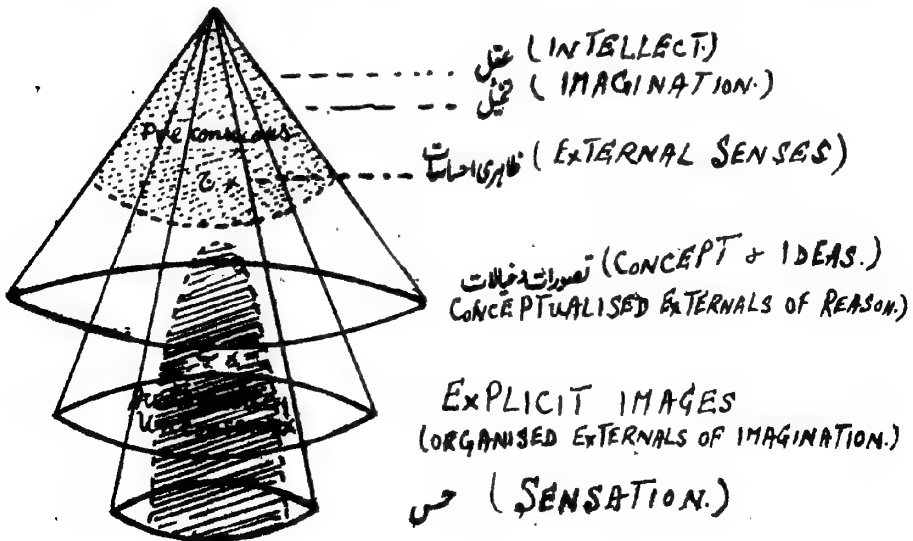 عقل (INTELLECT.)
تخیل (IMAGINATION.)
Pre conscious
ظاہری احساسات (EXTERNAL SENSES)
تصورات و خیالات (CONCEPT & IDEAS.)
CONCEPTUALISED EXTERNALS OF REASON.)
EXPLICIT IMAGES
(ORGANISED EXTERNALS OF IMAGINATION.)
حس (SENSATION.)